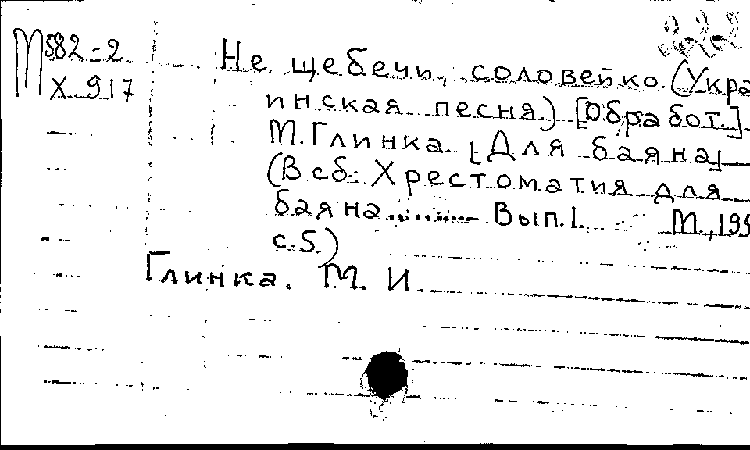 М 582-2
Х 917
Не щебечи, соловейко. (Укра
инская песня.) [Обработ.]
М. Глинка. [Для баяна]
(В сб.: Хрестоматия для
баяна......... Вып. 1. М., 199
с. 5.)
Глинка. М. И.